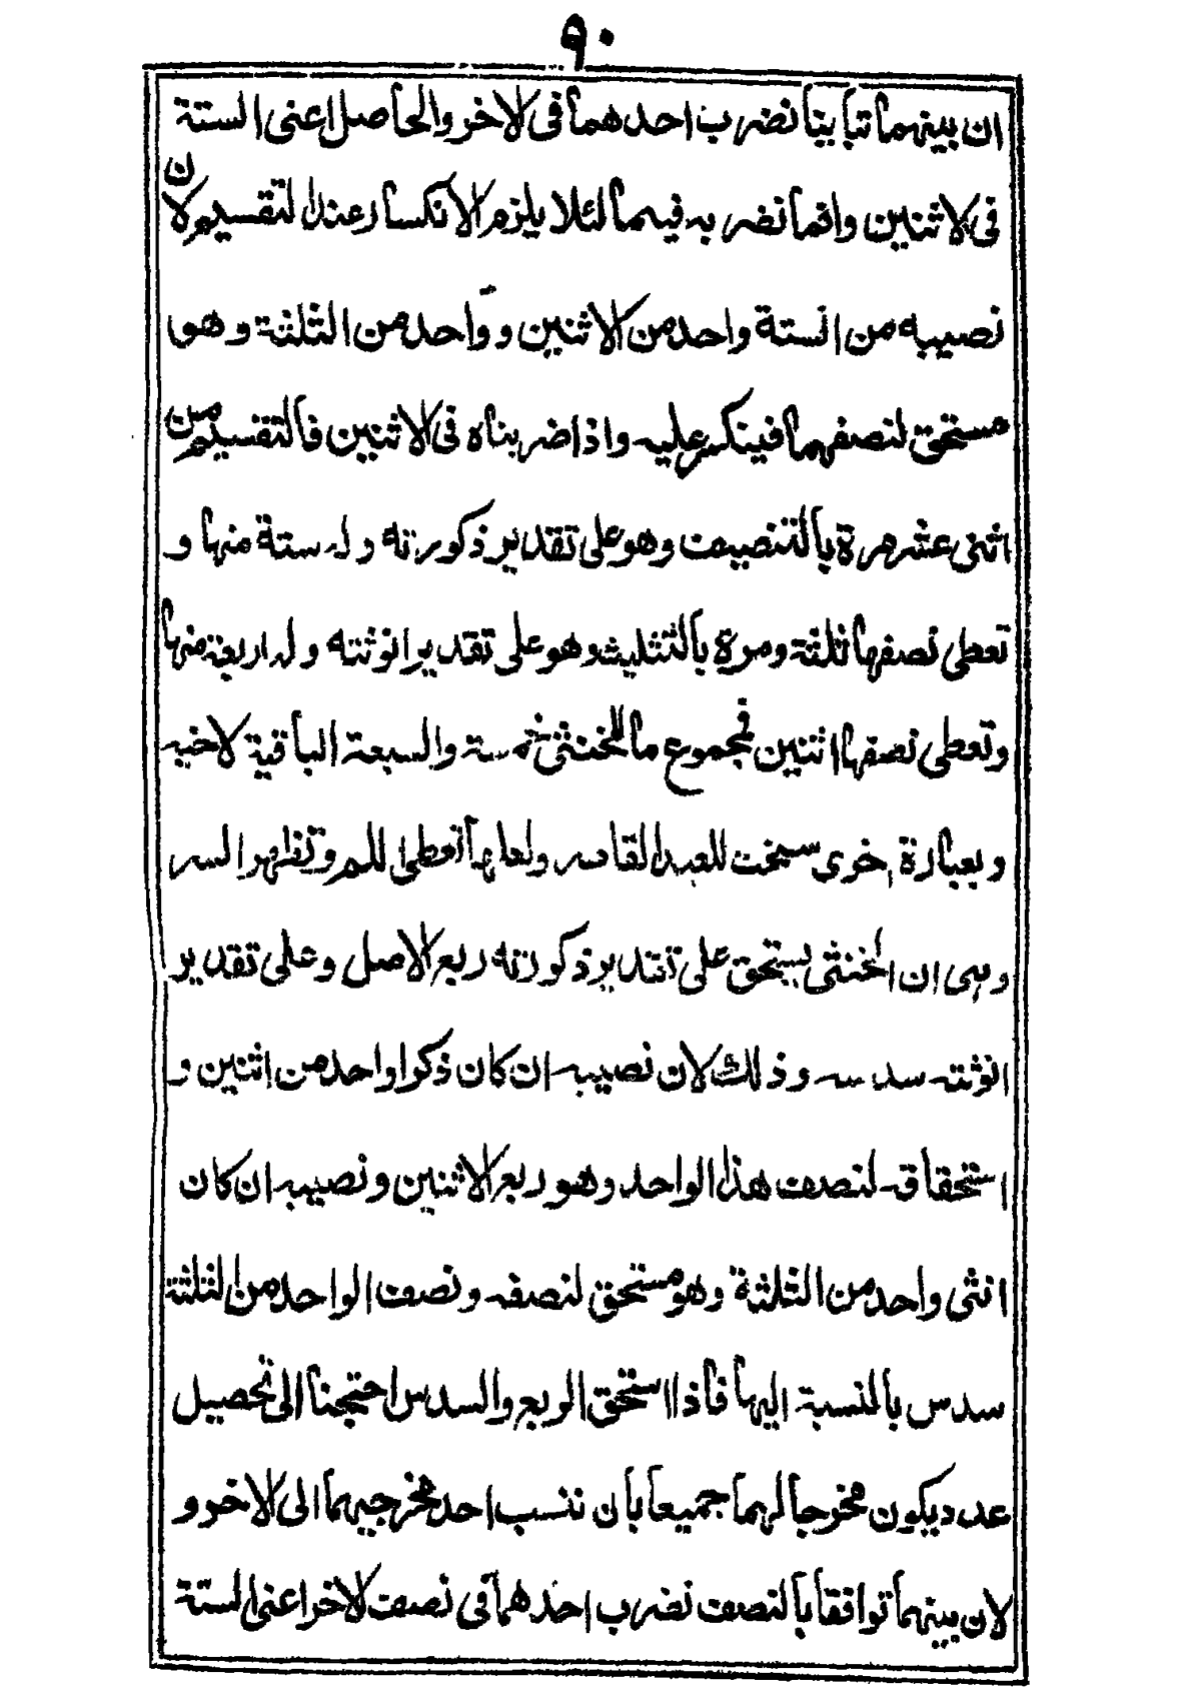 ٩٠
ان بينهما تباينا نضرب احدهما فى الاخر والحاصل اعنى الستة
فى الاثنين وانما نضربه فيهما لئلا يلزم الانكسار عند التقسيم لان
نصيبه من الستة واحد من الاثنين وواحد من الثلثة وهو
مستحق لنصفهما فينكسر عليه واذا ضربناه فى الاثنين فالتقسيم من
اثنى عشر مرة بالتنصيف وهو على تقدير ذكورته وله ستة منها و
تعطى نصفها ثلثة ومرة بالتثليث وهو على تقدير انوثته وله اربعة منها
وتعطى نصفها اثنين فمجموع ما للخنثى خمسة والسبعة الباقية لاخيه
وبعبارة اخرى سمخت للعبد القاصر ولعلها تعطى اللم وتظهر السر
وهى ان الخنثى يستحق على تقدير ذكورته ربع الاصل وعلى تقدير
انوثته سدسه وذلك لان نصيبه ان كان ذكرا واحد من اثنين و
استحقاقه لنصف هذا الواحد وهو ربع الاثنين ونصيبه ان كان
انثى واحد من الثلثة وهو مستحق لنصفه ونصف الواحد من الثلثة
سدس بالنسبة اليها فاذا استحق الربع والسدس احتجنا الى تحصيل
عدد يكون مخرجا لهما جميعا بأن ننسب احد مخرجيهما الى الاخر و
لان بينهما توافقا بالنصف نضرب احدهما فى نصف الاخر اعنى الستة